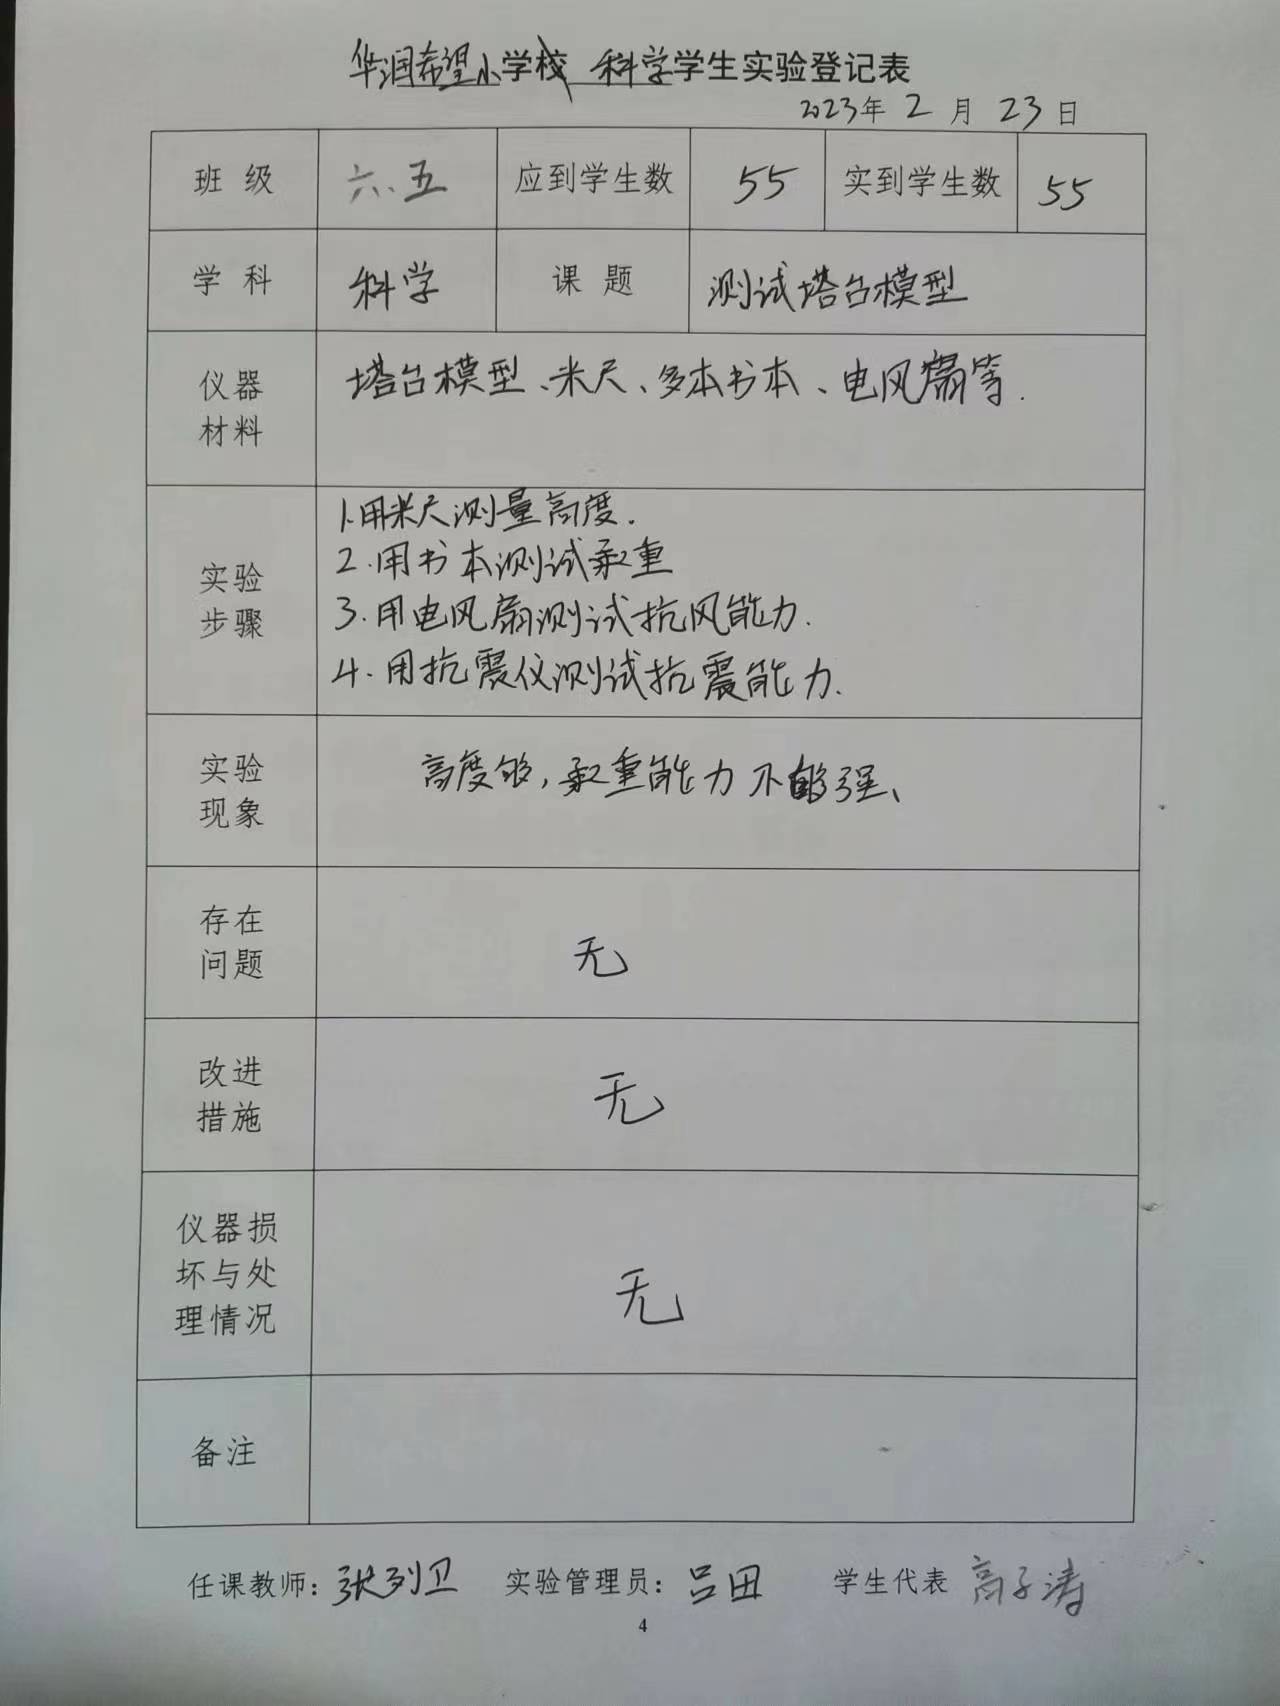 华润希望小学校 科学学生实验登记表
2023年 2 月 23 日
班 级 六、五 应到学生数 55 实到学生数 55
学 科 科学 课 题 测试塔台模型
仪器
材料
塔台模型、米尺、多本书本、电风扇等.
实验
步骤
1.用米尺测量高度.
2.用书本测试承重
3.用电风扇测试抗风能力.
4.用抗震仪测试抗震能力.
实验
现象
高度够,承重能力不够强、
存在
问题
无
改进
措施
无
仪器损
坏与处
理情况
无
备注
任课教师:张列卫 实验管理员:吕田 学生代表 高子涛
4